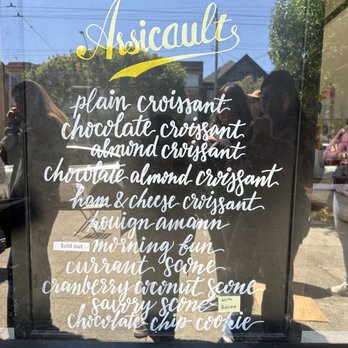 Assicault
plain croissant
chocolate croissant
almond croissant
chocolate almond croissant
ham & cheese croissant
kouign amann
Sold out morning bun
currant scone
cranberry coconut scone
savory scone with Bacon
chocolate chip cookie